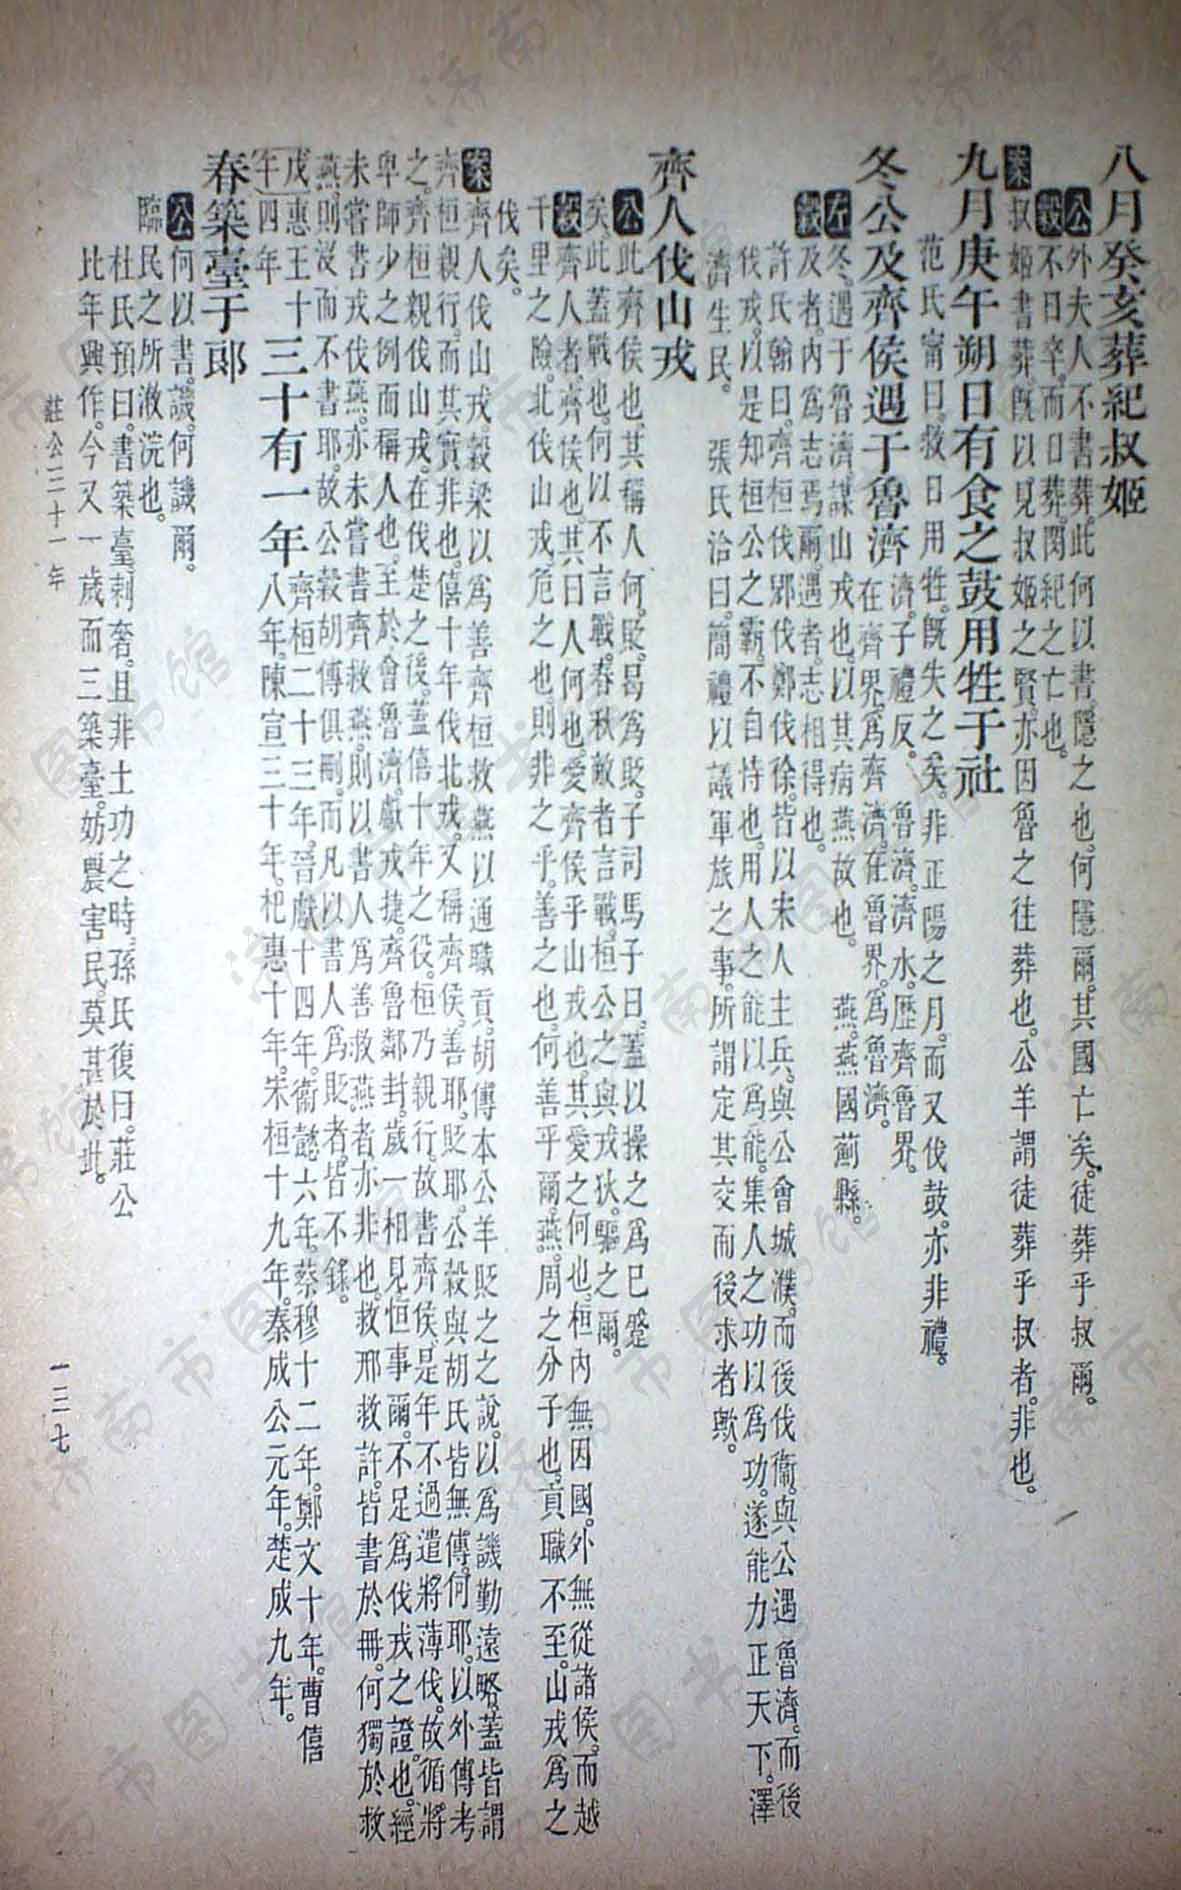 八月癸亥葬紀叔姬
公外夫人不書葬。此何以書。隱之也。何隱爾。其國亡矣。徒葬乎叔爾。
穀不日卒。而日葬。閔紀之亡也。
案叔姬書葬。旣以見叔姬之賢。亦因魯之往葬也。公羊謂徒葬乎叔者。非也。
九月庚午朔日有食之鼓用牲于社
范氏甯曰。救日用牲。旣失之矣。非正陽之月。而又伐鼓。亦非禮。
冬公及齊侯遇于魯濟 濟。子禮反。 魯濟。濟水。歷齊魯界。
在齊界。爲齊濟。在魯界。爲魯濟。
左冬。遇于魯濟。謀山戎也。以其病燕故也。 燕。燕國薊縣。
穀及者。內爲志焉爾。遇者。志相得也。
許氏翰曰。齊桓伐郳伐鄭伐徐。皆以宋人主兵。與公會城濮。而後伐衞。與公遇魯濟。而後
伐戎。以是知桓公之霸。不自恃也。用人之能以爲能。集人之功以爲功。遂能力正天下。澤
濟生民。 張氏洽曰。簡禮以議軍旅之事。所謂定其交而後求者歟。
齊人伐山戎
公此齊侯也。其稱人何。貶。曷爲貶。子司馬子曰。蓋以操之爲已蹙
矣。此蓋戰也。何以不言戰。春秋敵者言戰。桓公之與戎狄。驅之爾。
穀齊人者。齊侯也。其曰人何也。愛齊侯乎山戎也。其愛之何也。桓內無因國。外無從諸侯。而越
千里之險。北伐山戎。危之也。則非之乎。善之也。何善乎爾。燕。周之分子也。貢職不至。山戎爲之
伐矣。
案齊人伐山戎。穀梁以爲善齊桓救燕以通職貢。胡傳本公羊貶之之說。以爲譏勤遠略。蓋皆謂
齊桓親行。而其實非也。僖十年伐北戎。又稱齊侯。善耶。貶耶。公穀與胡氏皆無傳。何耶。以外傳考
之。齊桓親伐山戎。在伐楚之後。蓋僖十年之役。桓乃親行。故書齊侯。是年不過遣將薄伐。故循將
卑師少之例而稱人也。至於會魯濟。獻戎捷。齊魯鄰封。歲一相見恒事爾。不足爲伐戎之證也。經
未嘗書戎伐燕。亦未嘗書齊救燕。則以書人爲善救燕者。亦非也。救邢救許。皆書於冊。何獨於救
燕。則沒而不書耶。故公穀胡傳俱刪。而凡以書人爲貶者。皆不錄。
戊午惠王十四年 三十有一年 齊桓二十三年。晉獻十四年。衞懿六年。蔡穆十二年。鄭文十年。曹僖
八年。陳宣三十年。杞惠十年。宋桓十九年。秦成公元年。楚成九年。
春築臺于郎
公何以書。譏。何譏爾。
臨民之所漱浣也。
杜氏預曰。書築臺。刺奢。且非土功之時。孫氏復曰。莊公
比年興作。今又一歲而三築臺。妨農害民。莫甚於此。
莊公三十一年
一三七